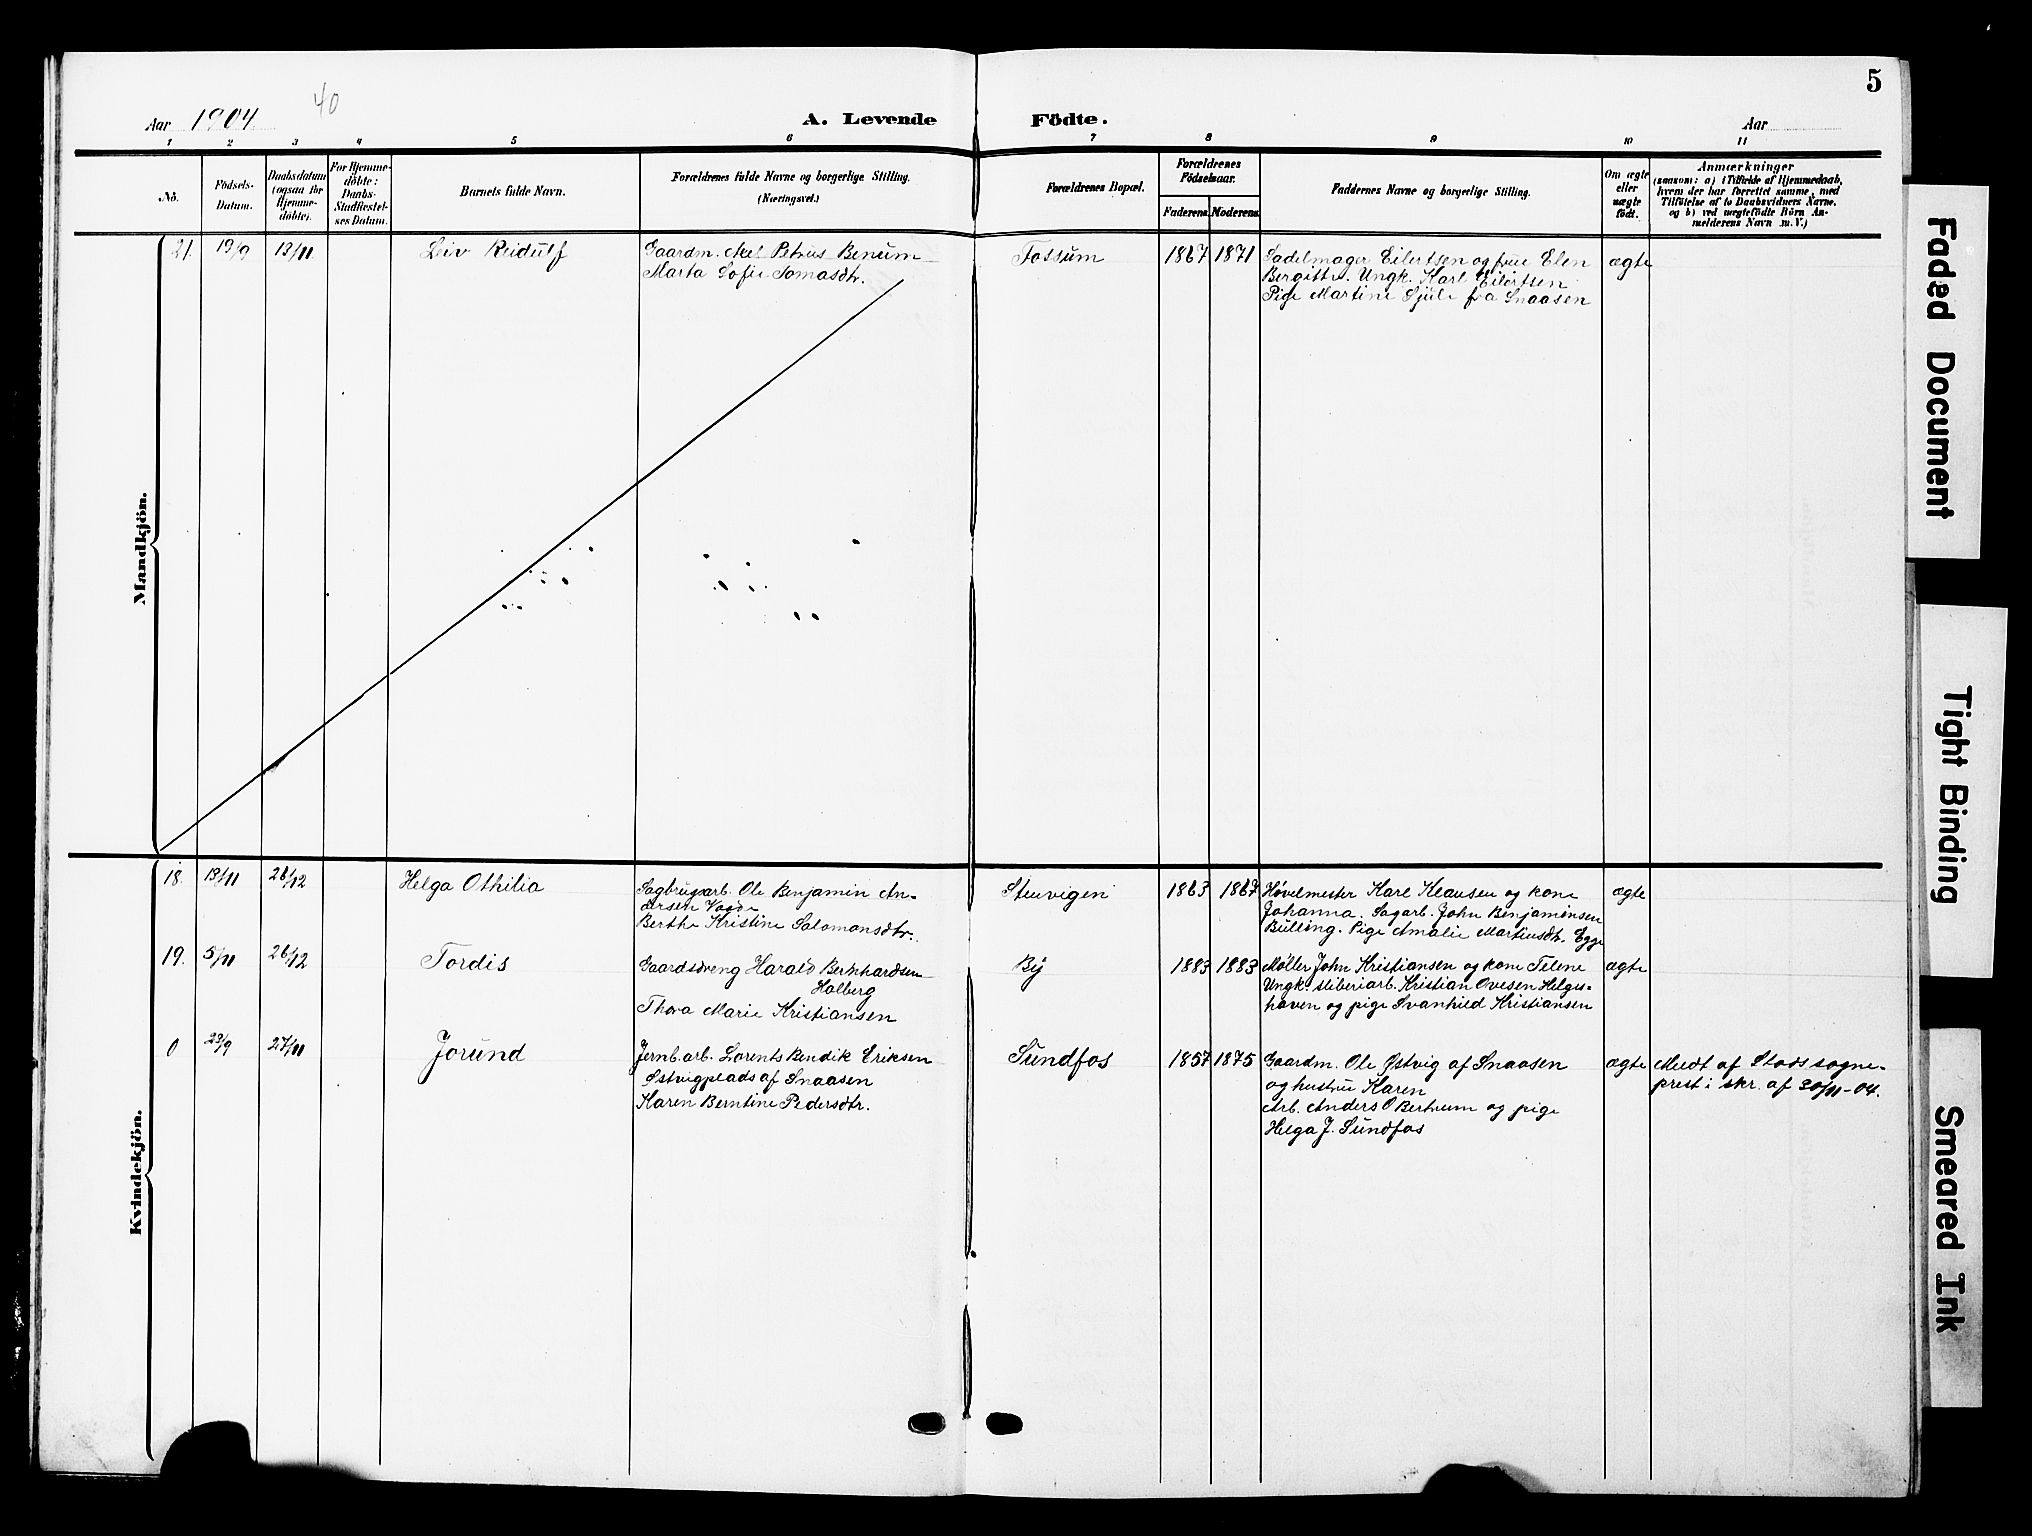 5
Aar 1904
40
A. Levende Födte.
Aar
1 2 3 4 5 6 7 8 9 10 11
No.
Födsels-
Datum.
Daabsdatum
(ogsaa for
Hjemme-
döbte).
For Hjemme-
döbte:
Daabs-
Stadfæstel-
ses Datum.
Barnets fulde Navn.
Forældrenes fulde Navne og borgerlige Stilling.
(Næringsvei.)
Forældrenes Bopæl.
Forældrenes
Födselsaar.
Faderens. Moderens.
Faddernes Navne og borgerlige Stilling.
Om ægte
eller
uægte
födt.
Anmærkninger
(saasom: a) i Tilfælde af Hjemmedaab,
hvem der har forrettet samme, med
Tilföielse af to Daabsvidners Navne,
og b) ved uægtefödte Börn An-
melderens Navn m. V.)
Mandkjön.
21. 19/9 13/11 Leiv Reidulf
Gaardm. Axel Petrus Benum
Marta Sofie Tomasdtr.
Fossum 1867 1871
Sadelmager Eilertsen og frue Elen
Bergitte. Ungk. Karl Eilertsen
Pige Martine Sjule fra Snaasen
ægte
Kvindekjön.
18. 13/11 26/12 Helga Othilia
Sagbrugsarb. Ole Benjamin An-
dersen
Berthe Kristine Salomonsdtr.
Stenvigen 1863 1867
Høvelmester Karl Klausen og kone
Johanna. Sagarb. John Benjaminsen
Bülling. Pige Amalie Martinsdtr. Egge
ægte
19. 5/11 26/12 Tordis
Gaardsdreng Harald Bernhardsen
Holberg
Thora Marie Kristiansen
By 1883 1883
Møller John Kristiansen og kone Telene
Ungk. sliberiarb. Kristian Ovesen Helges-
haven og pige Svanhild Kristiansen
ægte
0 23/9 27/11 Jorund
Jernb. arb. Lorents Bendik Eriksen
Østvigplads af Snaasen
Karen Berntine Pedersdtr.
Sundfos 1857 1875
Gaardm. Ole Østvig af Snaasen
og hustru Karen
Arb. Anders O Bertrum og pige
Helga J. Sundfos
ægte
Medt af Stods sogne-
prest i skr. af 30/11-04.
Faded Document
Tight Binding
Smeared Ink